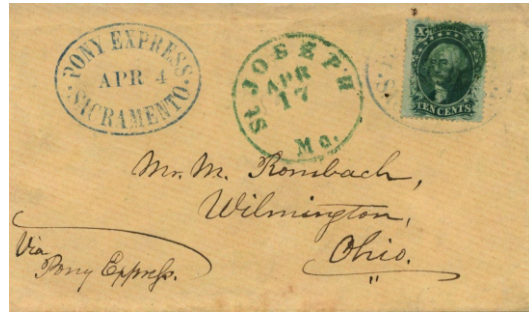 PONY EXPRESS
APR 4
SACRAMENTO
St JOSEPH
APR
17
Mo.
X X
TEN CENTS
Mr. M. Rombach,
Wilmington,
Ohio.
Via
Pony Express.